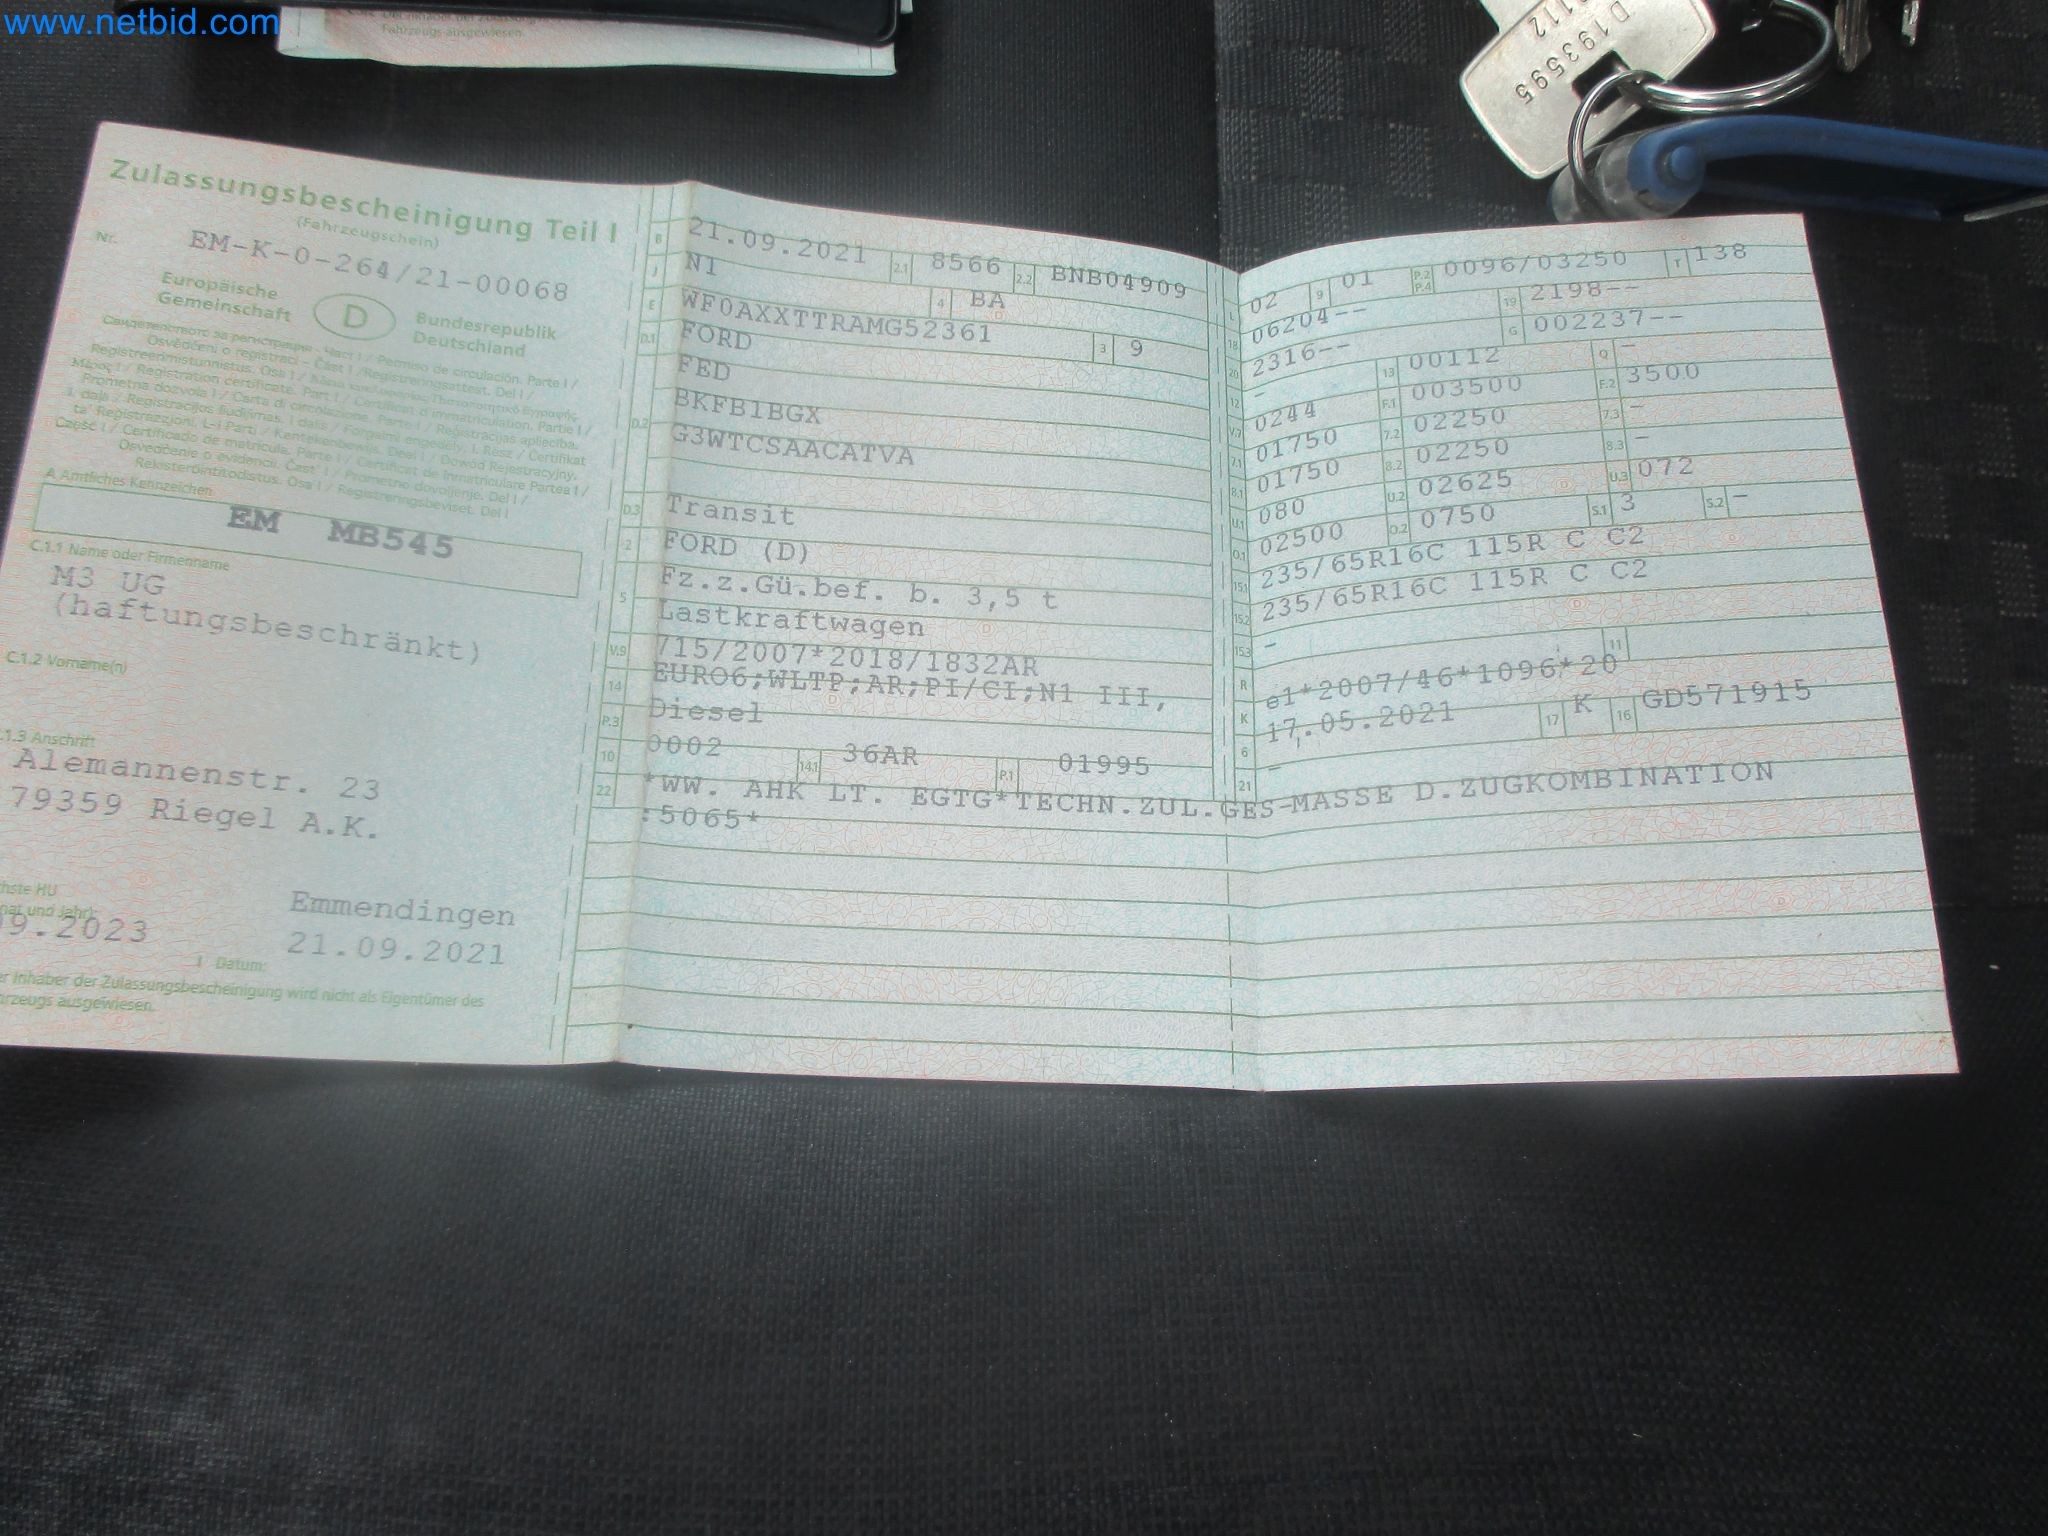 www.netbid.com
Fahrzeugs ausgewiesen.
D193595
Zulassungsbescheinigung Teil I
(Fahrzeugschein)
Nr. EM-K-0-264/21-00068
Europäische
Gemeinschaft
D
Bundesrepublik
Deutschland
A Amtliches Kennzeichen
EM MB545
C.1.1 Name oder Firmenname
M3 UG
(haftungsbeschränkt)
C.1.2 Vorname(n)
.1.3 Anschrift
Alemannenstr. 23
79359 Riegel A.K.
hste HU
nat und Jahr)
09.2023
Emmendingen
21.09.2021
I Datum:
er Inhaber der Zulassungsbescheinigung wird nicht als Eigentümer des
hrzeugs ausgewiesen.
B 21.09.2021 2.1 8566 2.2 BNB04909
J N1 4 BA
E WF0AXXTTRAMG52361 3 9
D.1 FORD
FED
D.2 BKFB1BGX
G3WTCSAACATVA
D.3 Transit
2 FORD (D)
5 Fz.z.Gü.bef. b. 3,5 t
Lastkraftwagen
V.9 715/2007*2018/1832AR
14 EURO6;WLTP;AR;PI/CI;N1 III,
P.3 Diesel
10 0002 14.1 36AR P.1 01995
22 *WW. AHK LT. EGTG*TECHN.ZUL.GES-MASSE D.ZUGKOMBINATION
:5065*
L 02 9 01 P.2 P.4 0096/03250 T 138
18 06204-- 19 2198--
20 2316-- G 002237--
12 - 13 00112 Q -
V.7 0244 F.1 003500 F.2 3500
7.1 01750 7.2 02250 7.3 -
8.1 01750 8.2 02250 8.3 -
U.1 080 U.2 02625 U.3 072
O.1 02500 O.2 0750 S.1 3 S.2 -
15.1 235/65R16C 115R C C2
15.2 235/65R16C 115R C C2
15.3 -
11
R
K e1*2007/46*1096*20
6 17.05.2021 17 K 16 GD571915
21 -